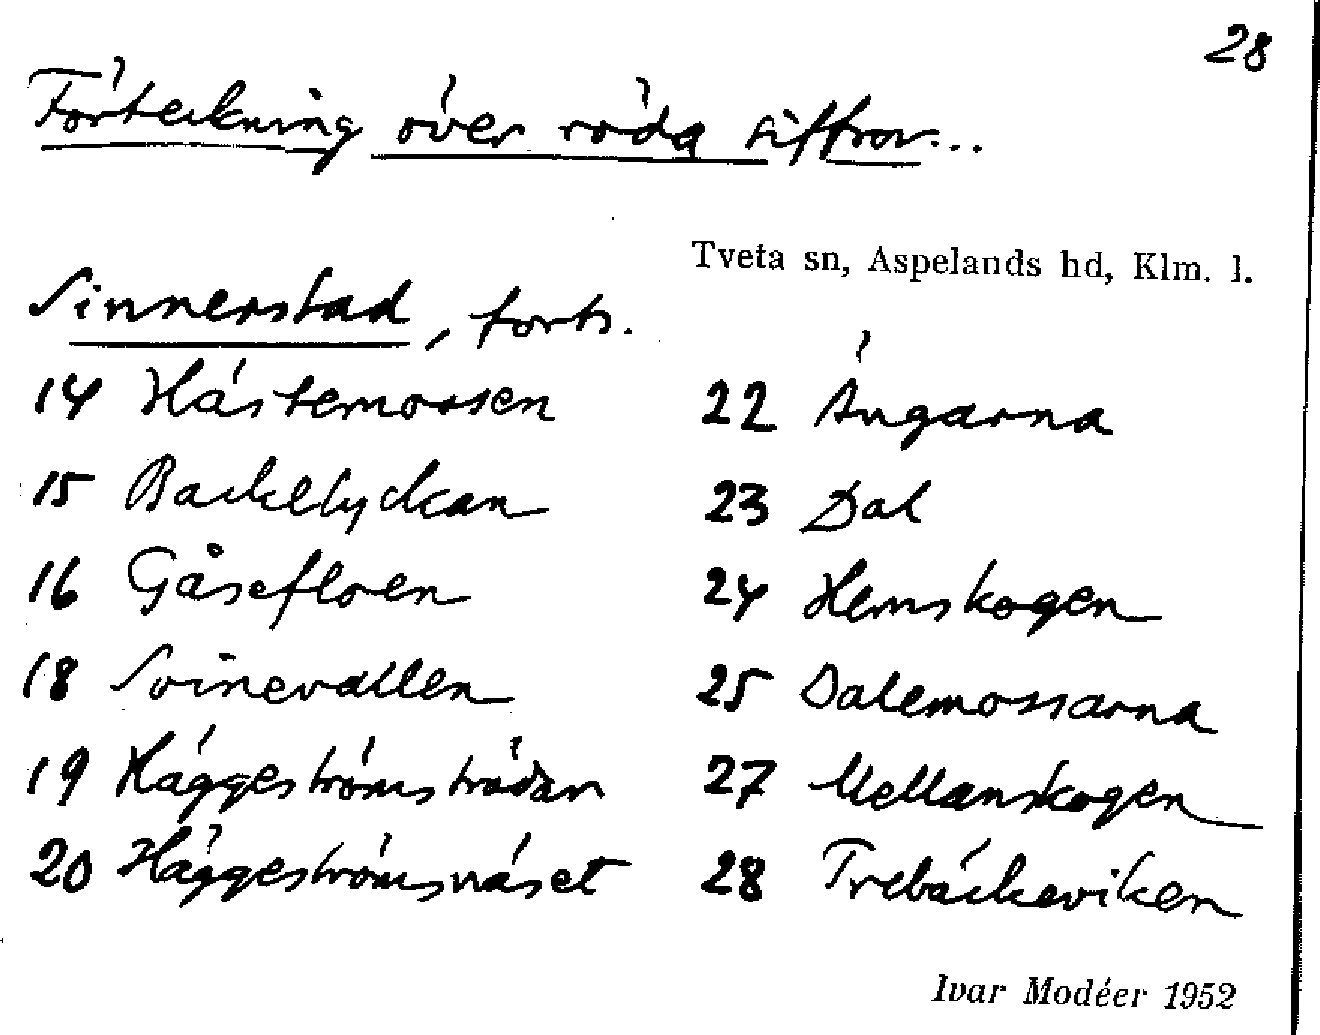 28
Förteckning över röda siffror...
Tveta sn, Aspelands hd, Klm. l.
Sinnerstad, forts.
14 Hästemossen
15 Backelyckan
16 Gåsefloen
18 Svinevallen
19 Häggeströmsträdan
20 Häggeströmsnäset
22 Ängarna
23 Dal
24 Hemskogen
25 Dalemossarna
27 Mellanskogen
28 Trebäckeviken
Ivar Modéer 1952